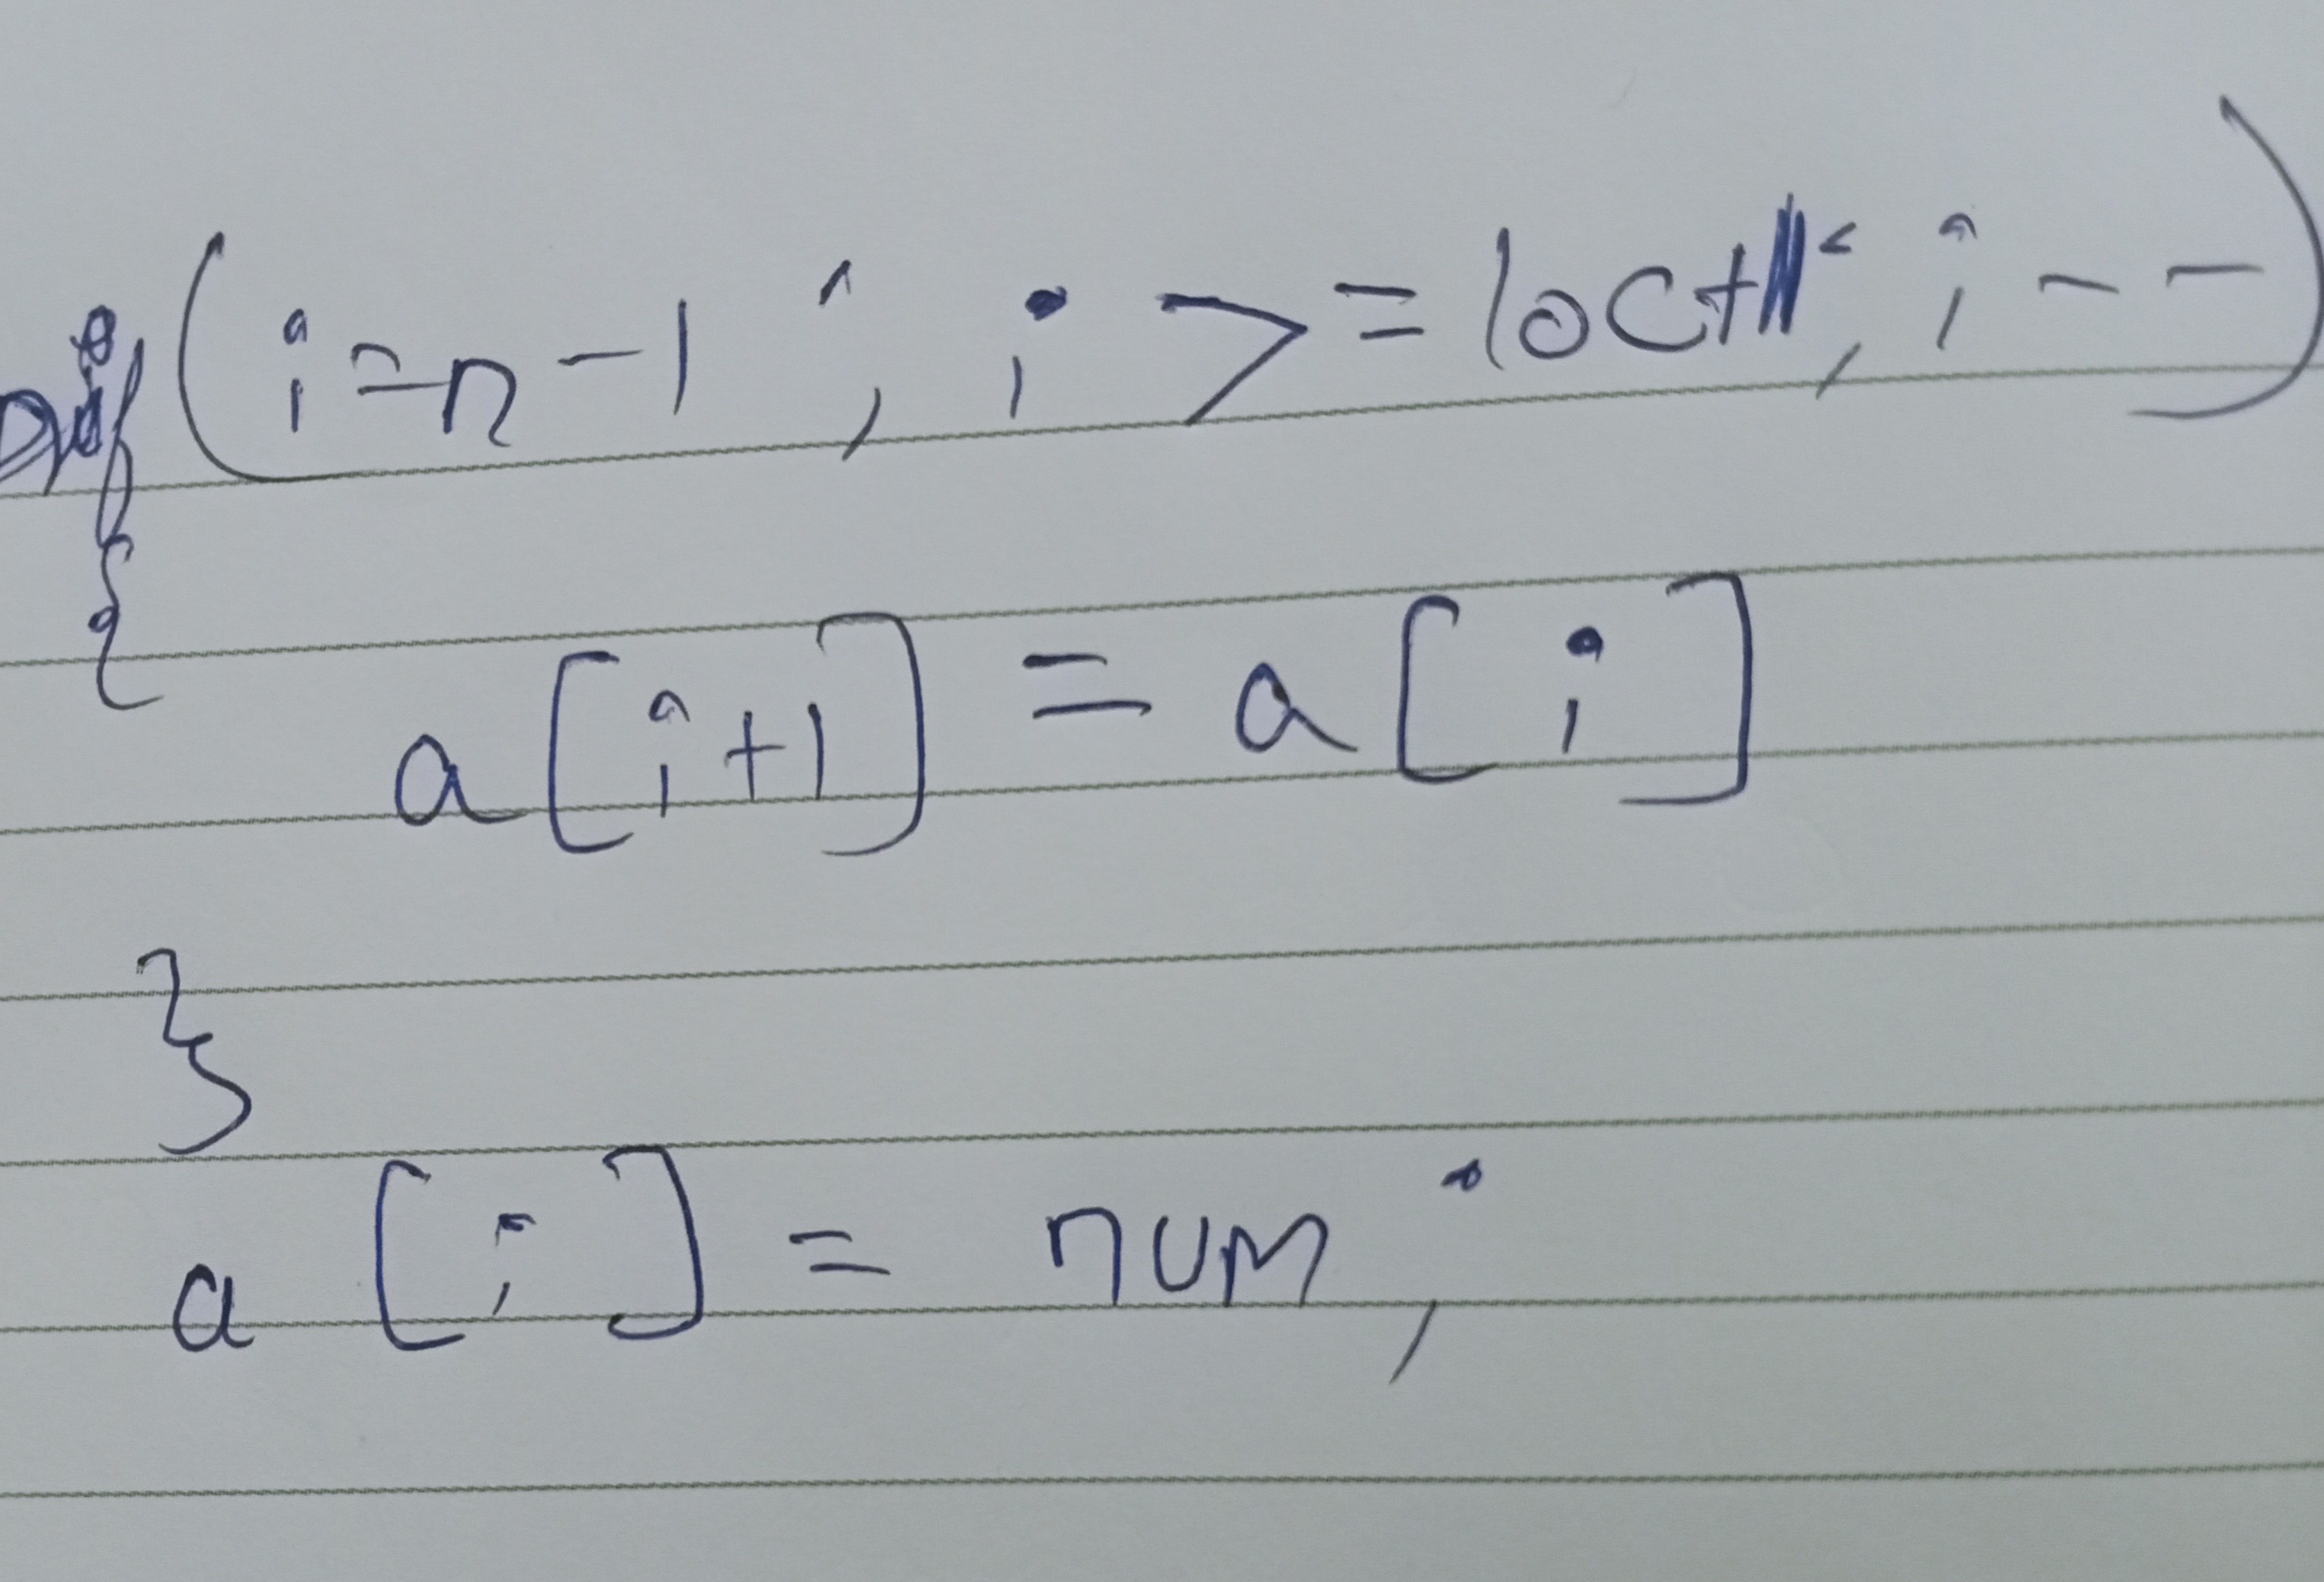 (i=n-1; i>=loc+1; i--)
{
a[i+1] = a[i]
}
a[i] = num;